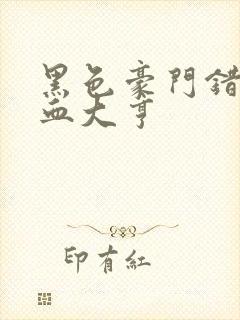 黑色豪門錯
血大亨
印有紅